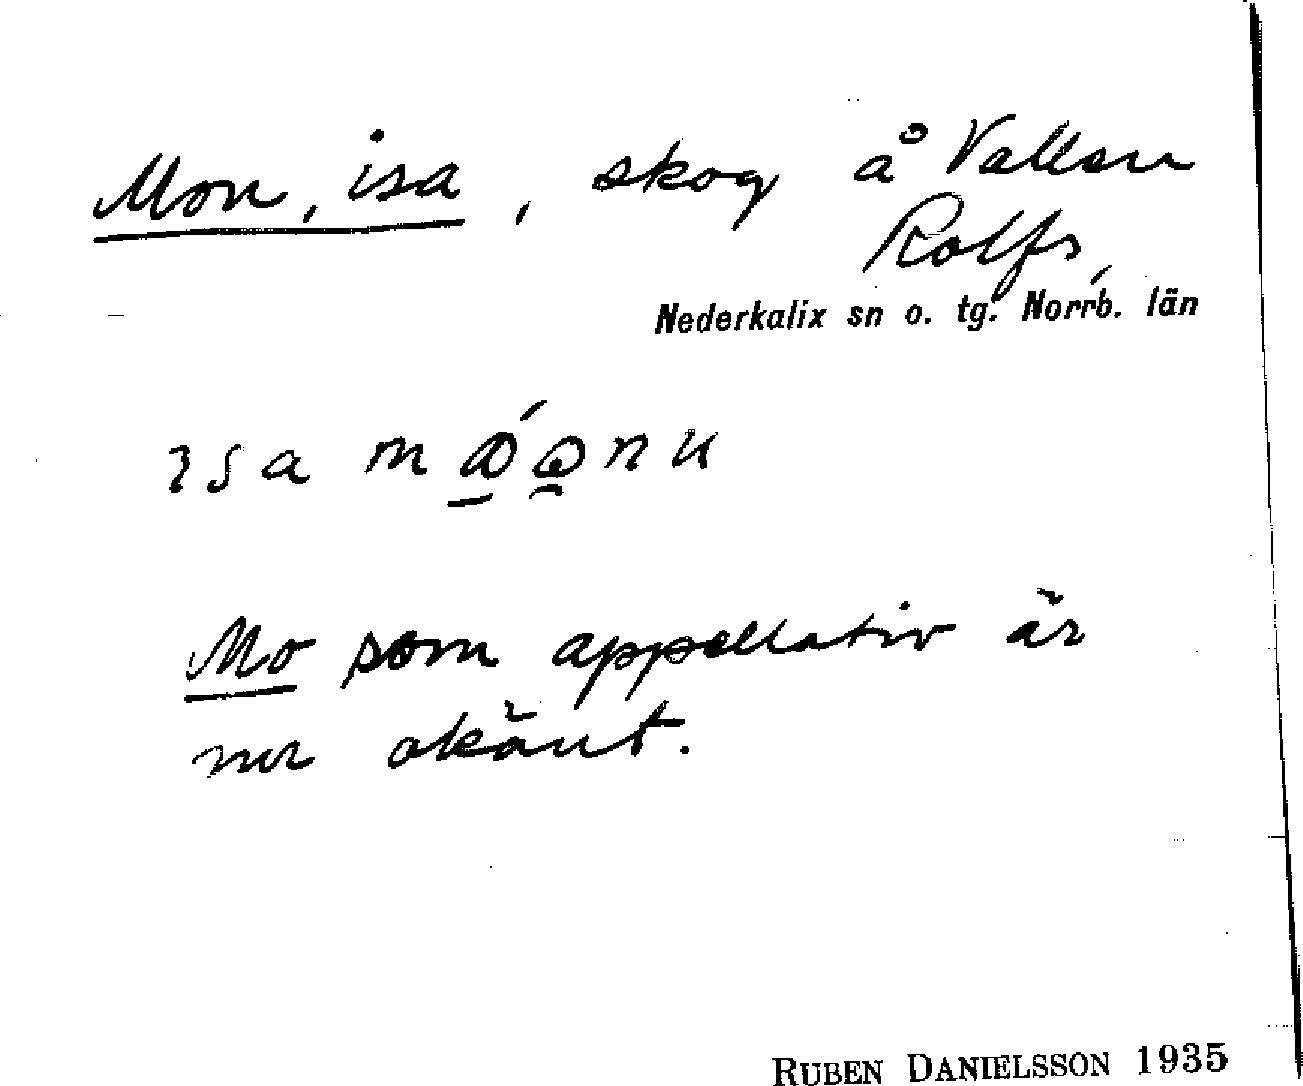 Mon, isa, skog å Vallen
Rolfs,
Nederkalix sn o. tg. Norrb. län
Mo som appellativ är
nu okänt.
RUBEN DANIELSSON 1935